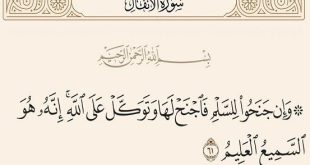 سُورَةُ الأَنفَالِ
بِسْمِ اللَّهِ الرَّحْمَٰنِ الرَّحِيمِ
۞ وَإِن جَنَحُوا۟ لِلسَّلْمِ فَٱجْنَحْ لَهَا وَتَوَكَّلْ عَلَى ٱللَّهِ ۚ إِنَّهُۥ هُوَ
ٱلسَّمِيعُ ٱلْعَلِيمُ ٦١